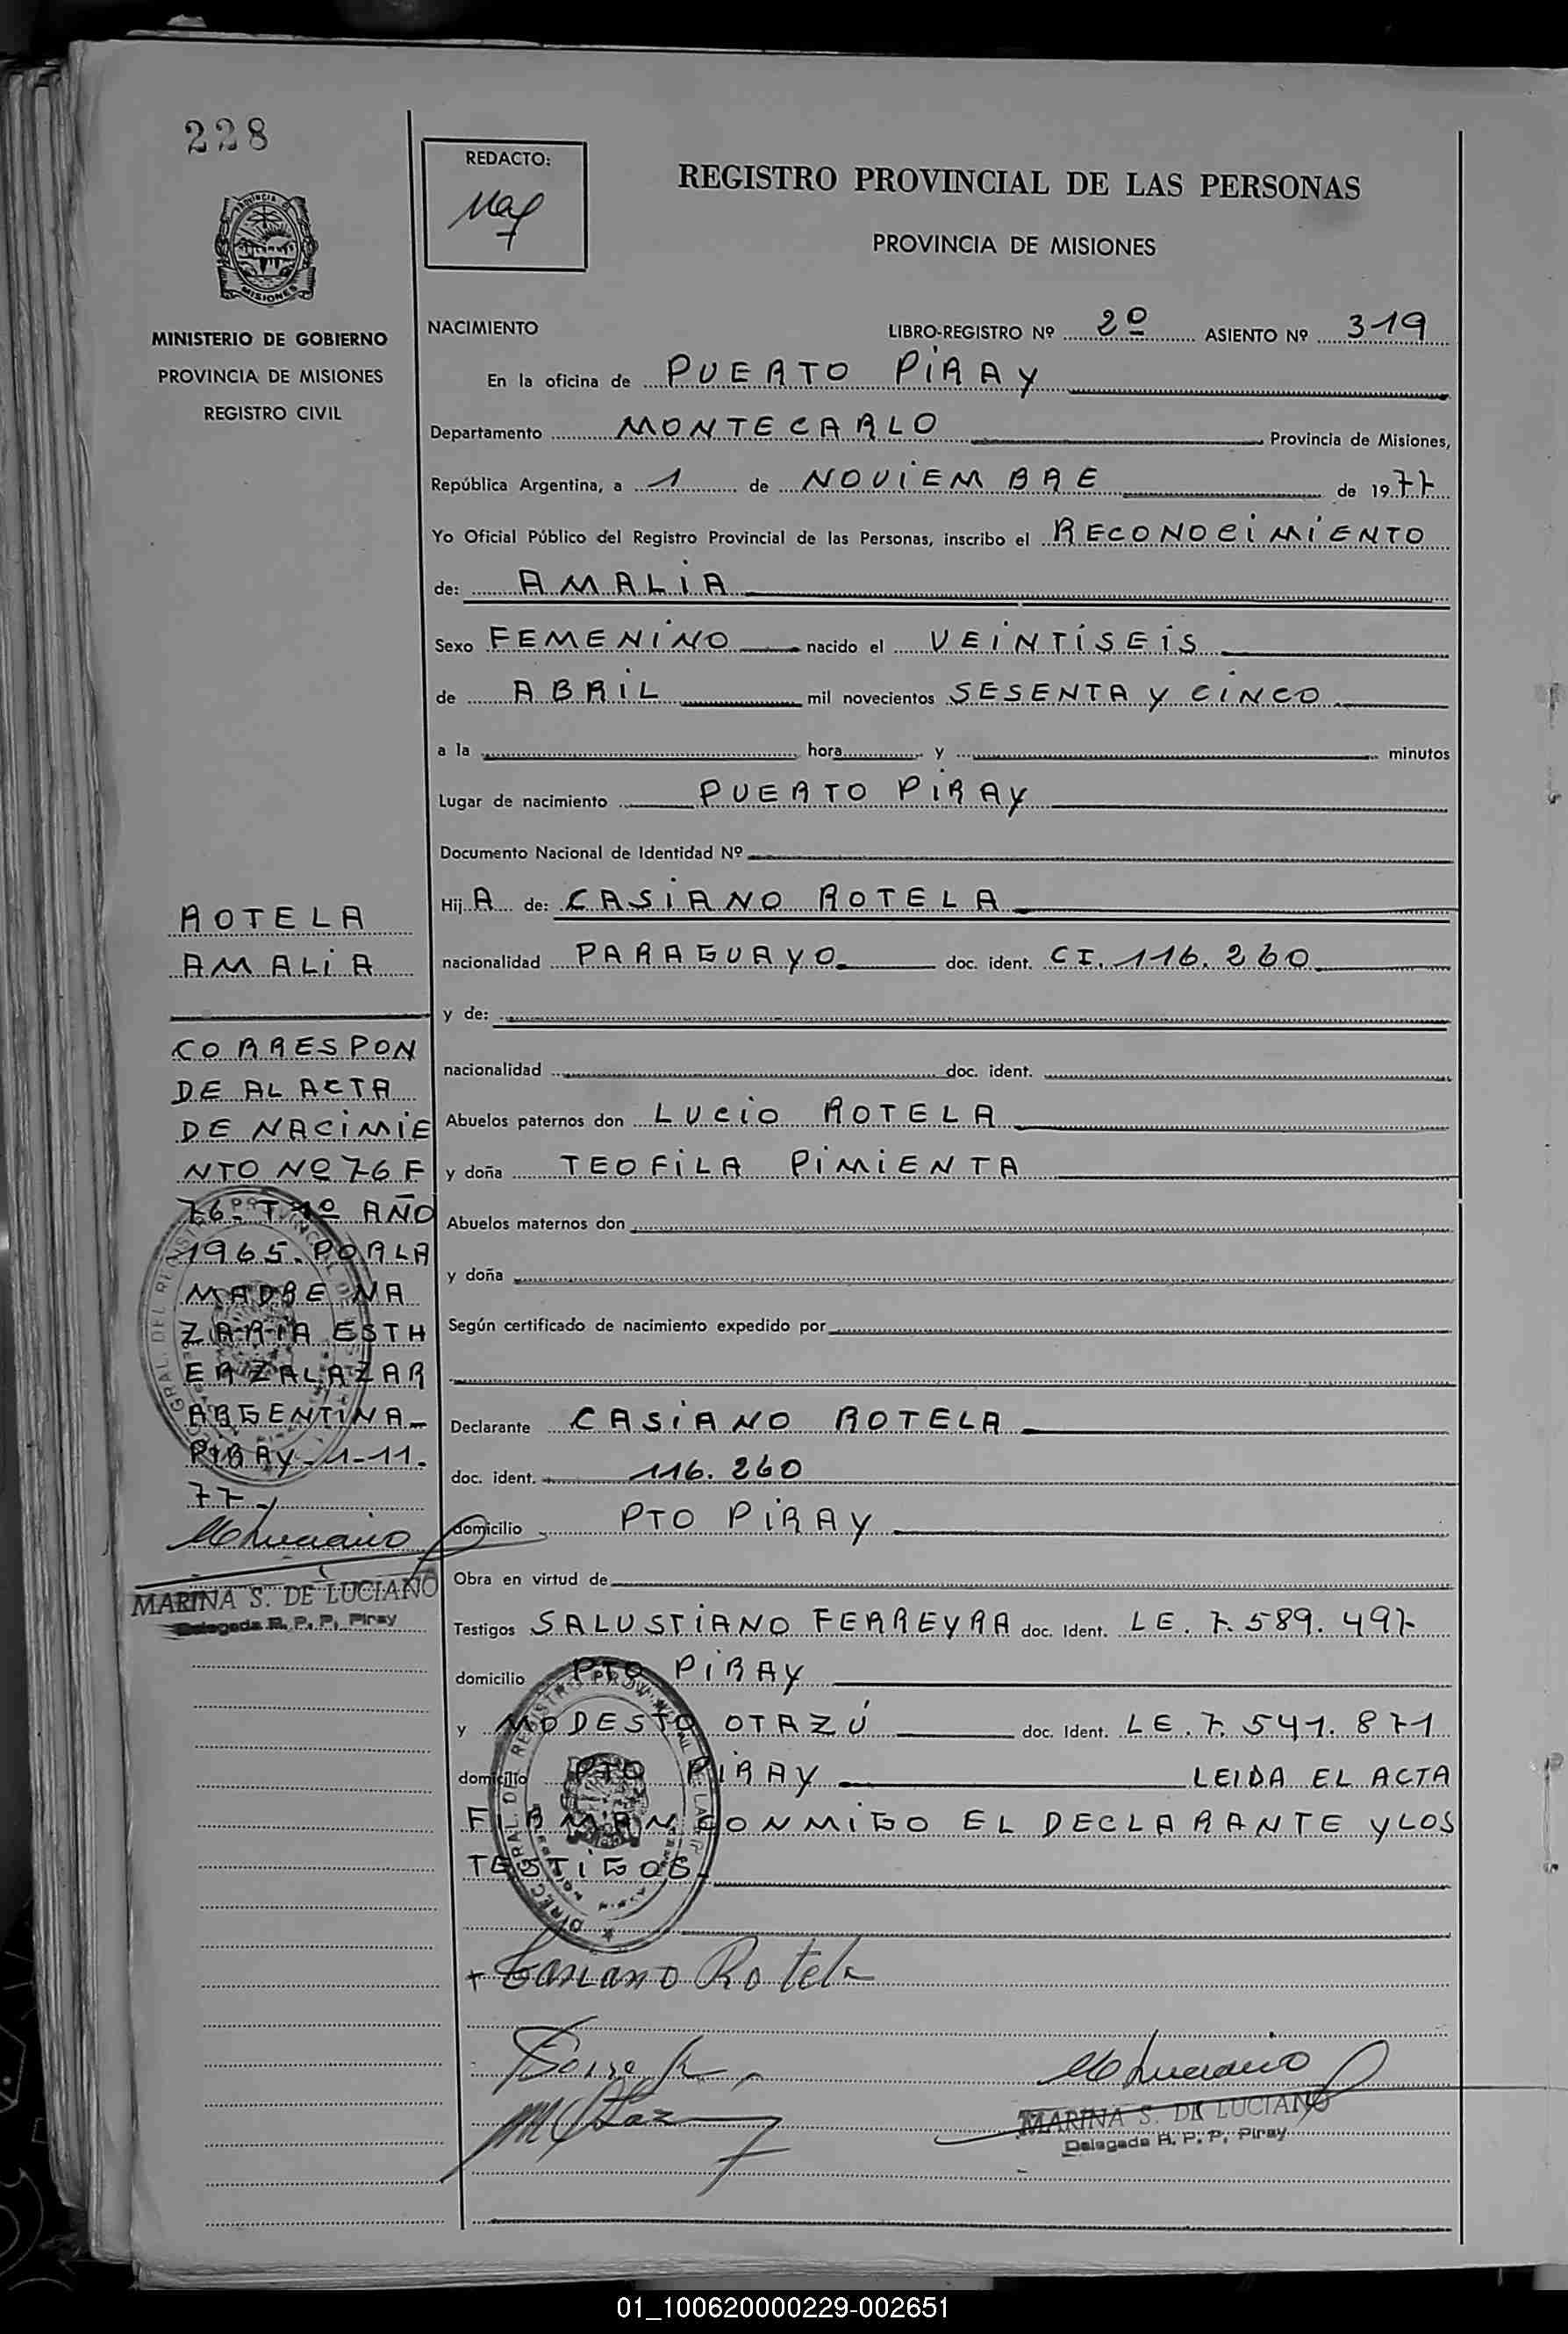 228
PROVINCIA DE
MISIONES
MINISTERIO DE GOBIERNO
PROVINCIA DE MISIONES
REGISTRO CIVIL
ROTELA
AMALIA
CORRESPON
DE AL ACTA
DE NACIMIE
NTO Nº 76 F
76º T.1º AÑO
1965. POR LA
MADRE NA
ZARIA ESTH
ER ZALAZAR
ARGENTINA_
PIRAY_1_11.
77_
MARINA S. DE LUCIANO
Delegada R. P. P. Piray
REDACTO:
REGISTRO PROVINCIAL DE LAS PERSONAS
PROVINCIA DE MISIONES
NACIMIENTO LIBRO-REGISTRO Nº 2º ASIENTO Nº 319
En la oficina de PUERTO PIRAY
Departamento MONTECARLO Provincia de Misiones,
República Argentina, a 1 de NOVIEMBRE de 1977
Yo Oficial Público del Registro Provincial de las Personas, inscribo el RECONOCIMIENTO
de: AMALIA
Sexo FEMENINO nacido el VEINTISEIS
de ABRIL mil novecientos SESENTA Y CINCO
a la hora y minutos
Lugar de nacimiento PUERTO PIRAY
Documento Nacional de Identidad Nº
Hij A de: CASIANO ROTELA
nacionalidad PARAGUAYO doc. ident. CI. 116.260
y de:
nacionalidad doc. ident.
Abuelos paternos don LUCIO ROTELA
y doña TEOFILA PIMIENTA
Abuelos maternos don
y doña
Según certificado de nacimiento expedido por
Declarante CASIANO ROTELA
doc. ident. 116.260
domicilio PTO PIRAY
Obra en virtud de
Testigos SALUSTIANO FERREYRA doc. Ident. LE. 7.589.497
domicilio PTO PIRAY
y MODESTO OTAZÚ doc. Ident. LE. 7.541.871
domicilio PTO PIRAY LEIDA EL ACTA
FIRMAN CONMIGO EL DECLARANTE Y LOS
TESTIGOS.
+ Casiano Rotela
MARINA S. DE LUCIANO
Delegada R. P. P. Piray
01_100620000229-002651